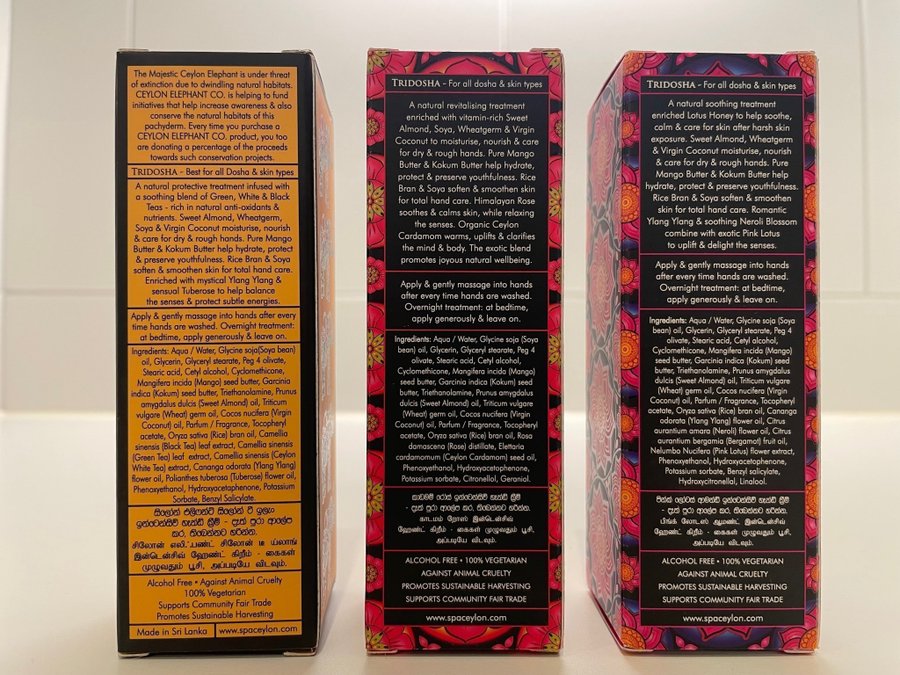 The Majestic Ceylon Elephant is under threat
of extinction due to dwindling natural habitats.
CEYLON ELEPHANT CO. is helping to fund
initiatives that help increase awareness & also
conserve the natural habitats of this
pachyderm. Every time you purchase a
CEYLON ELEPHANT CO. product, you too
are donating a percentage of the proceeds
towards such conservation projects.
TRIDOSHA - Best for all Dosha & skin types
A natural protective treatment infused with
a soothing blend of Green, White & Black
Teas - rich in natural anti-oxidants &
nutrients. Sweet Almond, Wheatgerm,
Soya & Virgin Coconut moisturise, nourish
& care for dry & rough hands. Pure Mango
Butter & Kokum Butter help hydrate, protect
& preserve youthfulness. Rice Bran & Soya
soften & smoothen skin for total hand care.
Enriched with mystical Ylang Ylang &
sensual Tuberose to help balance
the senses & protect subtle energies.
Apply & gently massage into hands after every
time hands are washed. Overnight treatment:
at bedtime, apply generously & leave on.
Ingredients: Aqua / Water, Glycine soja(Soya bean)
oil, Glycerin, Glyceryl stearate, Peg 4 olivate,
Stearic acid, Cetyl alcohol, Cyclomethicone,
Mangifera incida (Mango) seed butter, Garcinia
indica (Kokum) seed butter, Triethanolamine, Prunus
amygdalus dulcis (Sweet Almond) oil, Triticum
vulgare (Wheat) germ oil, Cocos nucifera (Virgin
Coconut) oil, Parfum / Fragrance, Tocopheryl
acetate, Oryza sativa (Rice) bran oil, Camellia
sinensis (Black Tea) leaf extract, Camellia sinensis
(Green Tea) leaf extract, Camellia sinensis (Ceylon
White Tea) extract, Cananga odorata (Ylang Ylang)
flower oil, Polianthes tuberosa (Tuberose) flower oil,
Phenoxyethanol, Hydroxyacetophenone, Potassium
Sorbate, Benzyl Salicylate.
සිලෝන් එලිෆන්ට් සිලෝන් ටී ඉලෑං
ඉන්ටෙන්සිව් හෑන්ඩ් ක්‍රීම් - දෑත් පුරා ආලේප
කර, තිබෙන්නට හරින්න.
சிலோன் எலிஃபண்ட் சிலோன் டீ யலாங்
இன்டென்சிவ் ஹேண்ட் கிரீம் - கைகள்
முழுவதும் பூசி, அப்படியே விடவும்.
Alcohol Free • Against Animal Cruelty
100% Vegetarian
Supports Community Fair Trade
Promotes Sustainable Harvesting
Made in Sri Lanka
www.spaceylon.com
TRIDOSHA - For all dosha & skin types
A natural revitalising treatment
enriched with vitamin-rich Sweet
Almond, Soya, Wheatgerm & Virgin
Coconut to moisturise, nourish & care
for dry & rough hands. Pure Mango
Butter & Kokum Butter help hydrate,
protect & preserve youthfulness. Rice
Bran & Soya soften & smoothen skin
for total hand care. Himalayan Rose
soothes & calms skin, while relaxing
the senses. Organic Ceylon
Cardamom warms, uplifts & clarifies
the mind & body. The exotic blend
promotes joyous natural wellbeing.
Apply & gently massage into hands
after every time hands are washed.
Overnight treatment: at bedtime,
apply generously & leave on.
Ingredients: Aqua / Water, Glycine soja (Soya
bean) oil, Glycerin, Glyceryl stearate, Peg 4
olivate, Stearic acid, Cetyl alcohol,
Cyclomethicone, Mangifera incida (Mango)
seed butter, Garcinia indica (Kokum) seed
butter, Triethanolamine, Prunus amygdalus
dulcis (Sweet Almond) oil, Triticum vulgare
(Wheat) germ oil, Cocos nucifera (Virgin
Coconut) oil, Parfum / Fragrance, Tocopheryl
acetate, Oryza sativa (Rice) bran oil, Rosa
damascena (Rose) distillate, Elettaria
cardamomum (Ceylon Cardamom) seed oil,
Phenoxyethanol, Hydroxyacetophenone,
Potassium sorbate, Citronellol, Geraniol.
කාඩමම් රෝස් ඉන්ටෙන්සිව් හෑන්ඩ් ක්‍රීම්
- දෑත් පුරා ආලේප කර, තිබෙන්නට හරින්න.
காடமம் றோஸ் இன்டென்சிவ்
ஹேண்ட் கிறீம் - கைகள் முழுவதும் பூசி,
அப்படியே விடவும்.
ALCOHOL FREE • 100% VEGETARIAN
AGAINST ANIMAL CRUELTY
PROMOTES SUSTAINABLE HARVESTING
SUPPORTS COMMUNITY FAIR TRADE
www.spaceylon.com
TRIDOSHA - For all dosha & skin types
A natural soothing treatment
enriched Lotus Honey to help soothe,
calm & care for skin after harsh skin
exposure. Sweet Almond, Wheatgerm
& Virgin Coconut moisturise, nourish
& care for dry & rough hands. Pure
Mango Butter & Kokum Butter help
hydrate, protect & preserve youthfulness.
Rice Bran & Soya soften & smoothen
skin for total hand care. Romantic
Ylang Ylang & soothing Neroli Blossom
combine with exotic Pink Lotus
to uplift & delight the senses.
Apply & gently massage into hands
after every time hands are washed.
Overnight treatment: at bedtime,
apply generously & leave on.
Ingredients: Aqua / Water, Glycine soja (Soya
bean) oil, Glycerin, Glyceryl stearate, Peg 4
olivate, Stearic acid, Cetyl alcohol,
Cyclomethicone, Mangifera incida (Mango)
seed butter, Garcinia indica (Kokum) seed
butter, Triethanolamine, Prunus amygdalus
dulcis (Sweet Almond) oil, Triticum vulgare
(Wheat) germ oil, Cocos nucifera (Virgin
Coconut) oil, Parfum / Fragrance, Tocopheryl
acetate, Oryza sativa (Rice) bran oil, Cananga
odorata (Ylang Ylang) flower oil, Citrus
aurantium amara (Neroli) flower oil, Citrus
aurantium bergamia (Bergamot) fruit oil,
Nelumbo Nucifera (Pink Lotus) flower extract,
Phenoxyethanol, Hydroxyacetophenone,
Potassium sorbate, Benzyl salicylate,
Hydroxycitronellal, Linalool.
පින්ක් ලෝටස් ආමන්ඩ් ඉන්ටෙන්සිව් හෑන්ඩ් ක්‍රීම්
- දෑත් පුරා ආලේප කර, තිබෙන්නට හරින්න.
பிங்க் லோடஸ் ஆமண்ட் இன்டென்சிவ்
ஹேண்ட் கிறீம் - கைகள் முழுவதும் பூசி,
அப்படியே விடவும்.
ALCOHOL FREE • 100% VEGETARIAN
AGAINST ANIMAL CRUELTY
PROMOTES SUSTAINABLE HARVESTING
SUPPORTS COMMUNITY FAIR TRADE
www.spaceylon.com